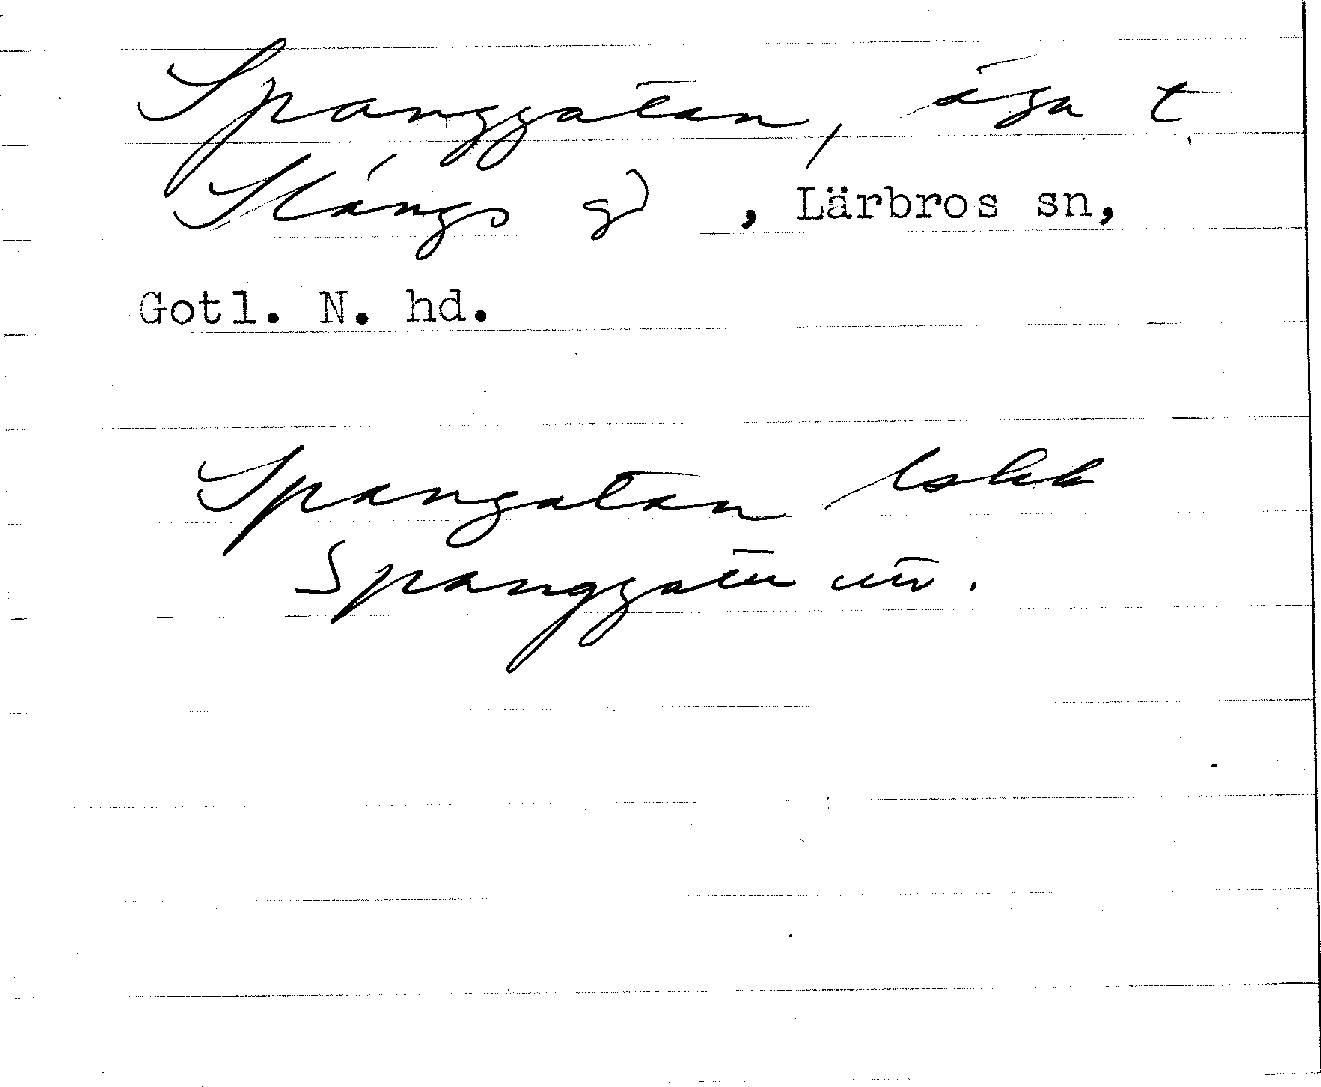 Spanggatan, äga t
Stångs gd, Lärbros sn,
Gotl. N. hd.
Spangatan lskk
Spanggatu utv.